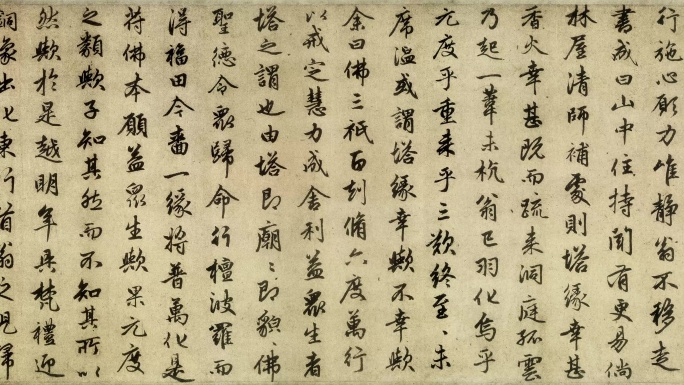 行施心願力唯静翁不移走
書成曰山中住持聞有更易倘
林屋清師補處則塔緣幸甚
香火幸甚既而疏来洞庭孤雲
乃起一葦未杭翁已羽化烏乎
元度乎重来乎三歎終至未
席温或謂塔緣幸歟不幸歟
余曰佛三祇百刼脩六度萬行
以戒定慧力成舍利益眾生者
塔之謂也由塔即廟〻即貌〻佛
聖德令眾歸命行檀波羅而
得福田今嗇一緣將普萬化是
符佛本願益眾生歟果元度
之類歟子知其然而不知其所以
然歟於是越明年具梵禮迎
洞象出七東行首翁之見歸